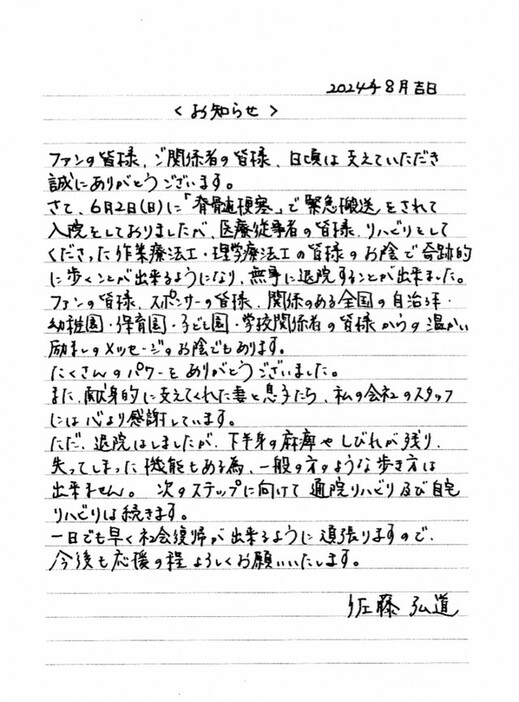 2024年8月吉日
<お知らせ>
ファンの皆様、ご関係者の皆様、日頃は支えていただき
誠にありがとうございます。
さて、6月2日(日)に「脊髄梗塞」で緊急搬送をされて
入院をしておりましたが、医療従事者の皆様、リハビリをして
くださった作業療法工・理学療法工の皆様のお陰で奇跡的
に歩くことが出来るようになり、無事に退院することが出来ました。
ファンの皆様、スポンサーの皆様、関係のある全国の自治体・
幼稚園・保育園・こども園・学校関係者の皆様からの温かい
励ましのメッセージのお陰でもあります。
たくさんのパワーをありがとうございました。
また、献身的に支えてくれた妻と息子たち、私の会社のスタッフ
には心より感謝しています。
ただ、退院はしましたが、下半身の麻痺やしびれが残り、
失ってしまった機能もある為、一般の方のような歩き方は
出来ません。次のステップに向けて通院リハビリ及び自宅
リハビリは続きます。
一日でも早く社会復帰が出来るように頑張りますので、
今後も応援の程よろしくお願いいたします。
佐藤弘道